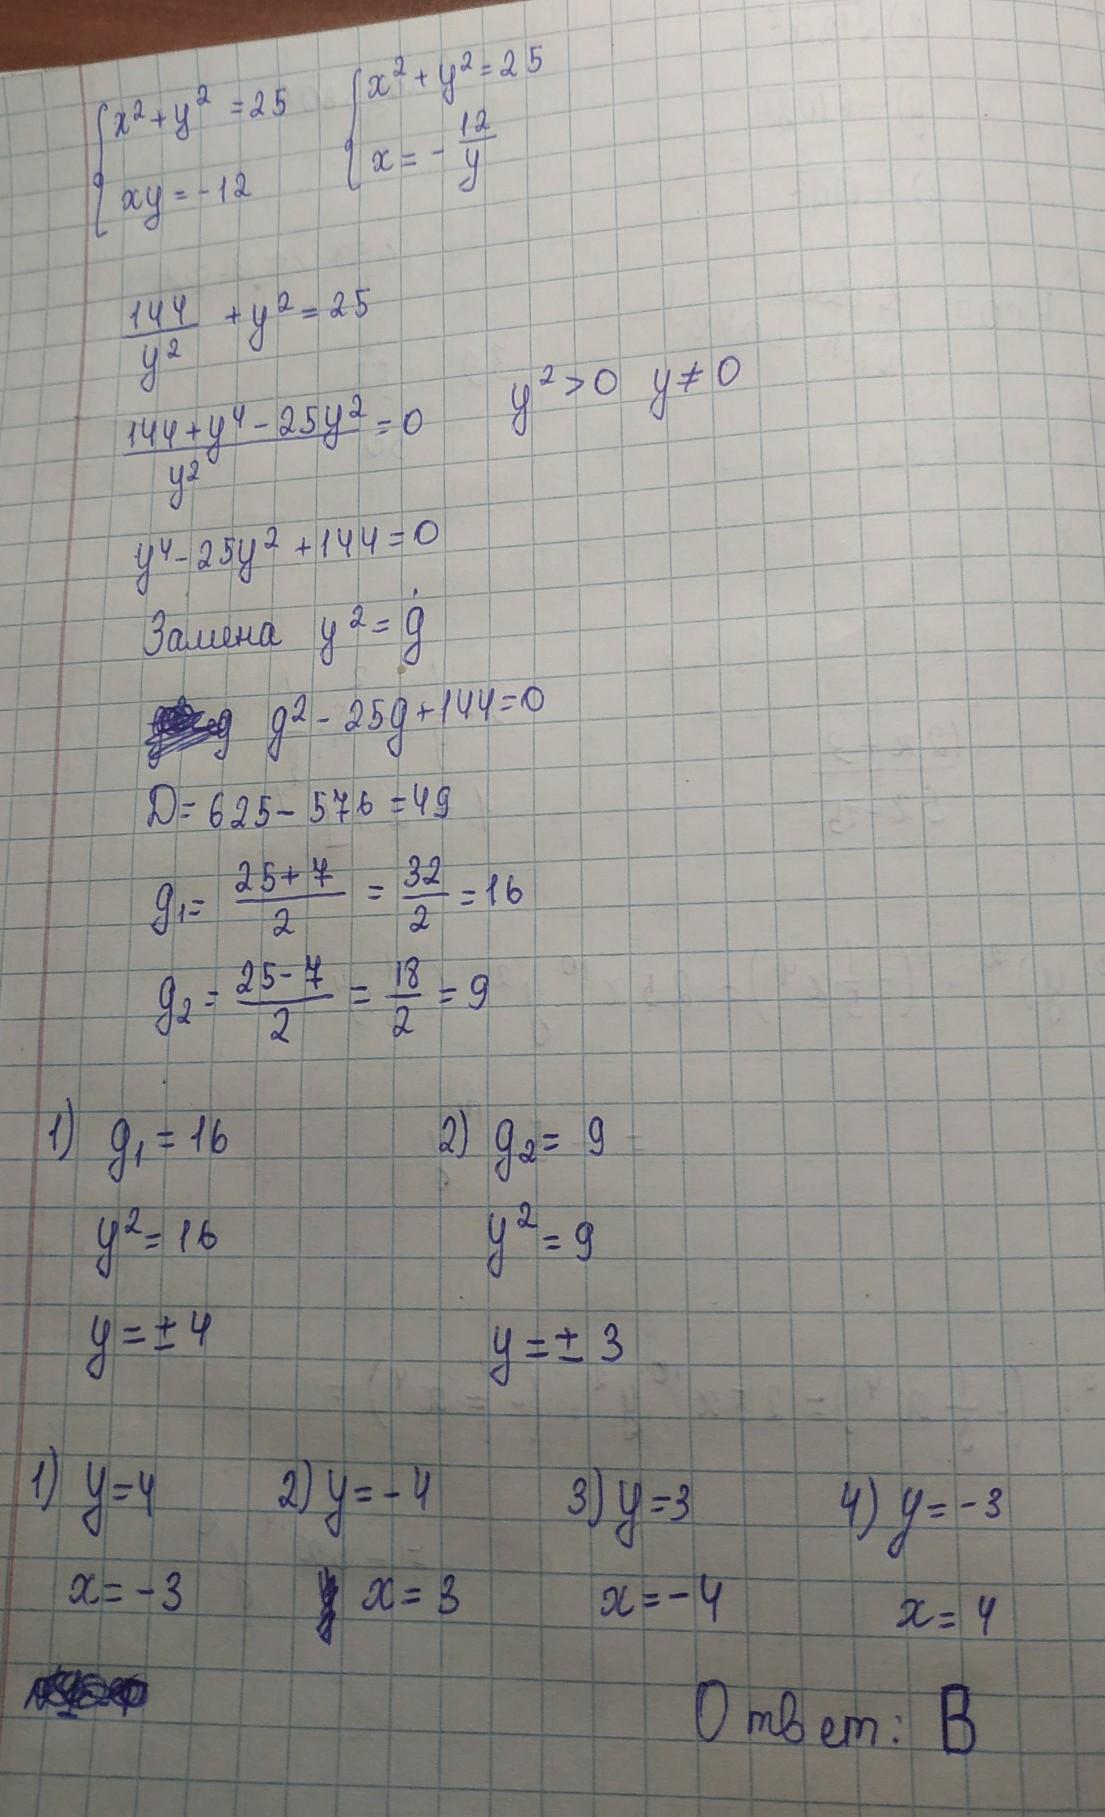 { x² + y² = 25   { x² + y² = 25
{ xy = -12   { x = - 12/y
144/y² + y² = 25
(144 + y⁴ - 25y²)/y² = 0   y² > 0   y ≠ 0
y⁴ - 25y² + 144 = 0
Замена y² = g
g² - 25g + 144 = 0
D = 625 - 576 = 49
g₁ = (25 + 7)/2 = 32/2 = 16
g₂ = (25 - 7)/2 = 18/2 = 9
1) g₁ = 16   2) g₂ = 9
y² = 16   y² = 9
y = ± 4   y = ± 3
1) y = 4   2) y = -4   3) y = 3   4) y = -3
x = -3   x = 3   x = -4   x = 4
Ответ: В